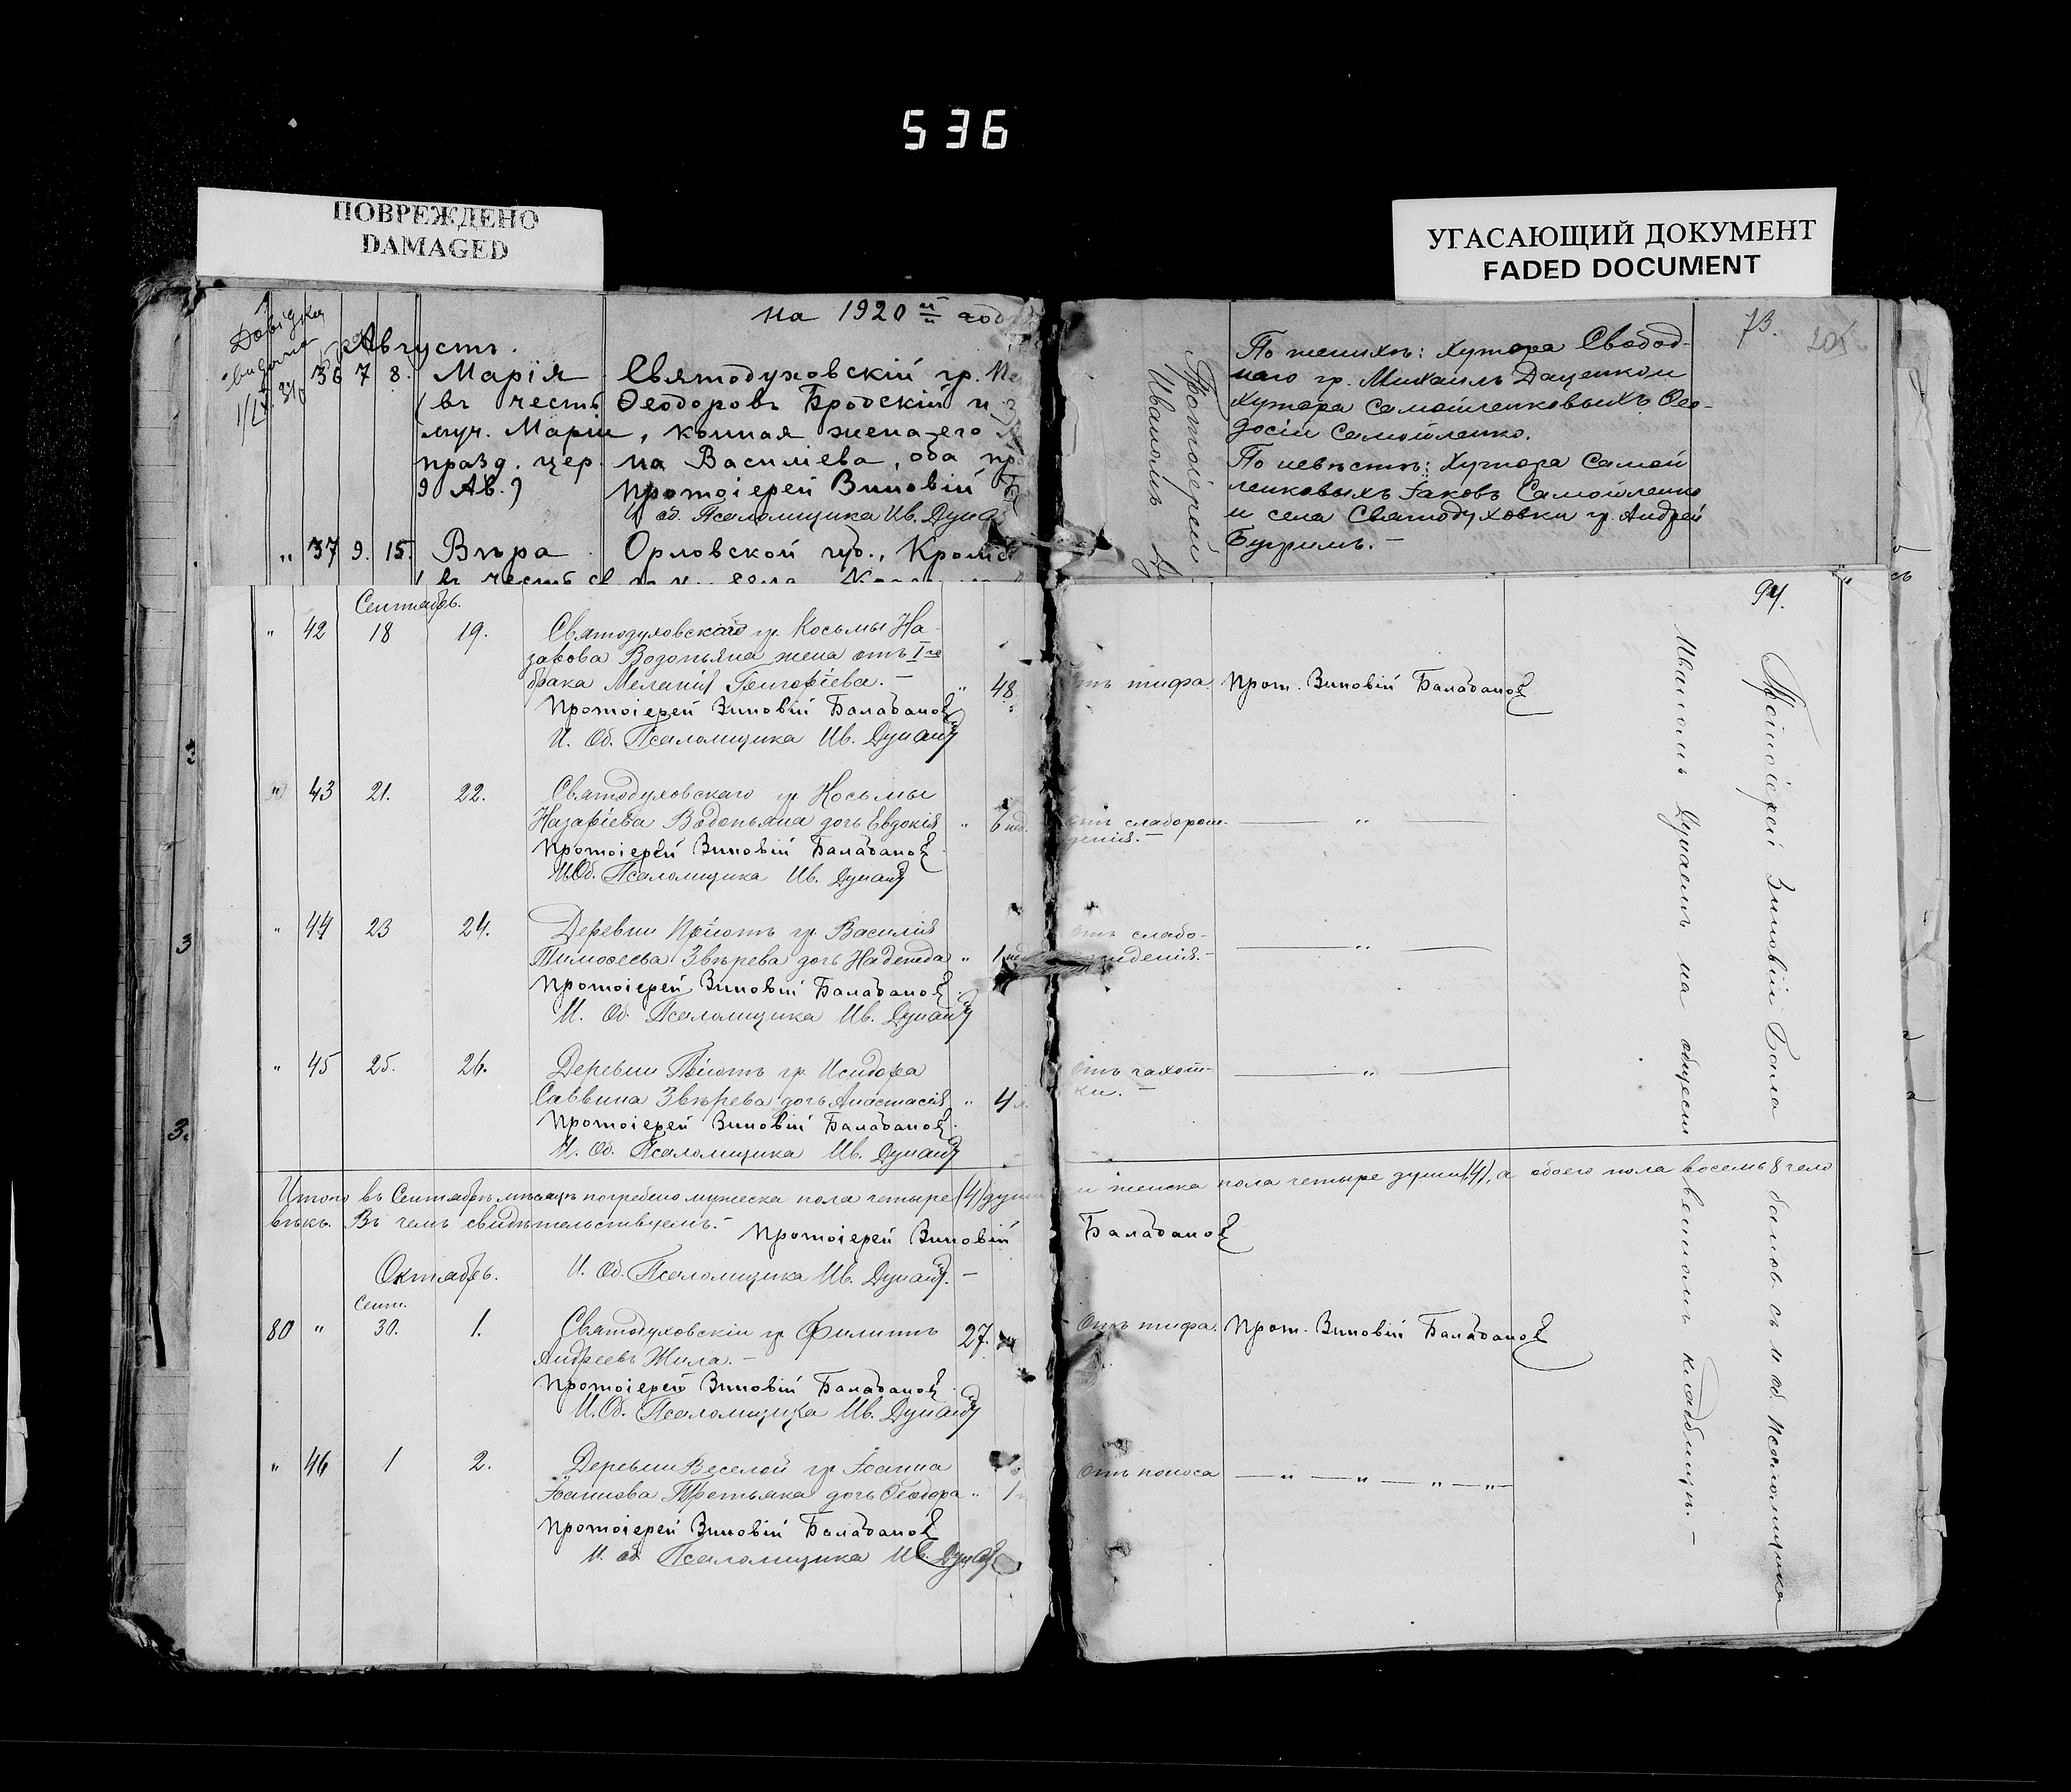 536
ПОВРЕЖДЕНО
DAMAGED
УГАСАЮЩИЙ ДОКУМЕНТ
FADED DOCUMENT
на 1920 й год
Довідка
видана
Августъ.
36 7 8. Марія Святодуховскій гр.
(въ честь Ѳеодоровъ Бродскій и
муч. Маріи, конная жена его
празд. цер. на Василіева, оба
9 Ав.) Протоіерей Зиновій
об. Псаломщика Ив. Дунай
" 37 9. 15. Вѣра Орловской губ., Кромс
(въ честь св
Протоіерей
Иваномъ
По женихѣ: хутора Свобод-
наго гр. Михаилъ Даценко и
хутора Самойленковыхъ Ѳео-
досій Самойленко.
По невѣстѣ: хутора Самой
ленковыхъ Іаковъ Самойленко
и села Святодуховки гр. Андрей
Бугримъ. -
73.
205
Сентябрь.
" 42 18 19. Святодуховскаго гр. Косьмы На-
зарова Водопьяна жена отъ I го
брака Меланія Григоріева. - " 48.
Протоіерей Зиновій Балабановъ
И. Об. Псаломщика Ив. Дунай
отъ тифа. Прот. Зиновій Балабановъ
94.
" 43 21. 22. Святодуховскаго гр Косьмы
Назаріева Водопьяна дочь Евдокія " 6 нед.
Протоіерей Зиновій Балабановъ
И.Об. Псаломщика Ив. Дунай
отъ слаборож-
денія. - — " —
" 44 23 24. Деревни Пріютъ гр. Василія
Тимоѳеева Звѣрева дочь Надежда " 1 нед
Протоіерей Зиновій Балабановъ
И. Об. Псаломщика Ив. Дунай
отъ слабо-
рожденія. - — " —
" 45 25. 26. Деревни Пріютъ гр. Исидора
Саввина Звѣрева дочь Анастасія " 4 л.
Протоіерей Зиновій Балабановъ
И. Об. Псаломщика Ив. Дунай
отъ чахот-
ки. - — " —
Итого въ Сентябрѣ мѣсяцѣ погребено мужеска пола четыре (4) души и женска пола четыре души (4), а обоего пола восемь 8 чело
вѣкъ. Въ чемъ свидѣтельствуемъ. -
Протоіерей Зиновій Балабановъ
И. Об. Псаломщика Ив. Дунай. -
Октябрь.
Сент.
80 " 30. 1. Святодуховскій гр Филиппъ 27.
Андреевъ Жила. -
Протоіерей Зиновій Балабановъ
И.Об. Псаломщика Ив. Дунай
Отъ тифа. Прот. Зиновій Балабановъ
" 46 1 2. Деревни Веселой гр Іоанна
Іоаннова Третьяка дочь Ѳеодора " 1
Протоіерей Зиновій Балабановъ
И. об. Псаломщика Ив. Дунай
Отъ поноса — " — " — " — " —
Протоіерей Зиновій Балабановъ съ и об. Псаломщика
Иваномъ Дунаемъ на общественномъ кладбищѣ. -